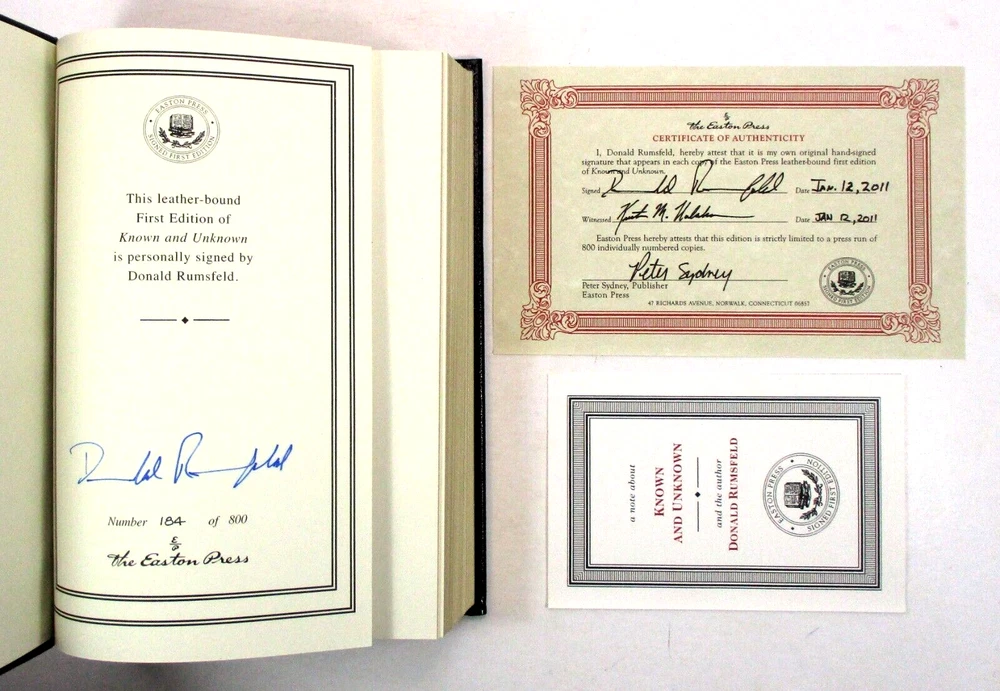 EASTON PRESS
SIGNED FIRST EDITION
This leather-bound
First Edition of
Known and Unknown
is personally signed by
Donald Rumsfeld.
Donald Rumsfeld
Number 184 of 800
E/P
the Easton Press
E/P
the Easton Press
CERTIFICATE OF AUTHENTICITY
I, Donald Rumsfeld, hereby attest that it is my own original hand-signed
signature that appears in each copy of the Easton Press leather-bound first edition
of Known and Unknown.
Signed Donald Rumsfeld Date Jan. 12, 2011
Witnessed Date JAN 12, 2011
Easton Press hereby attests that this edition is strictly limited to a press run of
800 individually numbered copies.
Peter Sydney
Peter Sydney, Publisher
Easton Press
47 RICHARDS AVENUE, NORWALK, CONNECTICUT 06857
EASTON PRESS
SIGNED FIRST EDITION
a note about
KNOWN
AND UNKNOWN
and the author
DONALD RUMSFELD
EASTON PRESS
SIGNED FIRST EDITION